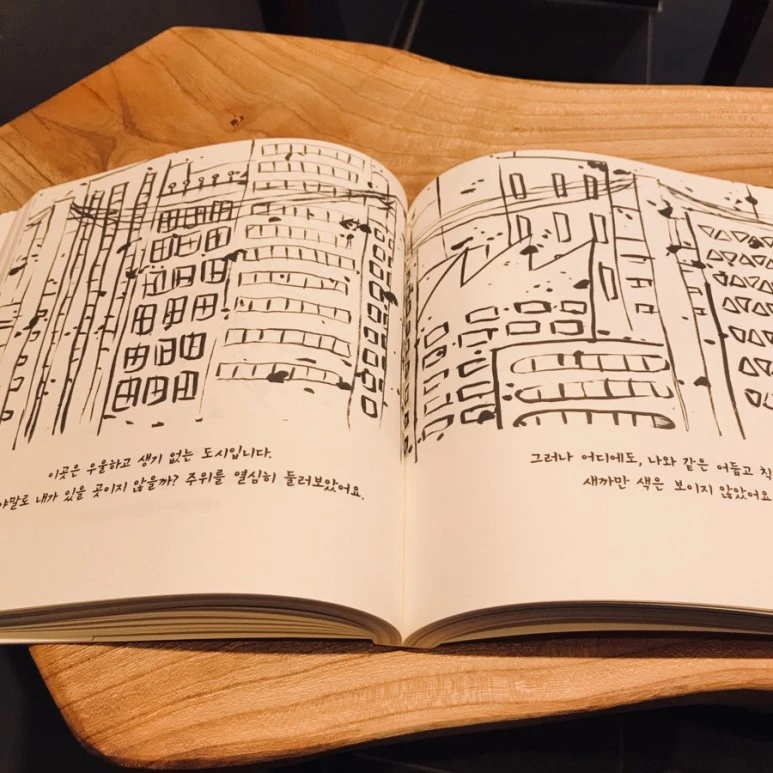 이곳은 우울하고 생기 없는 도시입니다.
내가 있을 곳이지 않을까? 주위를 열심히 둘러보았어요.
그러나 어디에도, 나와 같은 어둡고
새까만 색은 보이지 않았어요